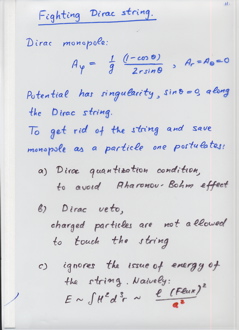 Fighting Dirac string.
Dirac monopole:
Aφ = 1/g (1-cosθ)/2r sinθ , Ar = Aθ = 0
Potential has singularity, sinθ = 0, along
the Dirac string.
To get rid of the string and save
monopole as a particle one postulates:
a) Dirac quantization condition,
to avoid Aharonov-Bohm effect
b) Dirac veto,
charged particles are not allowed
to touch the string
c) ignores the issue of energy of
the string. Naively:
E ~ ∫H²d³r ~ ℓ (Flux)²/a²